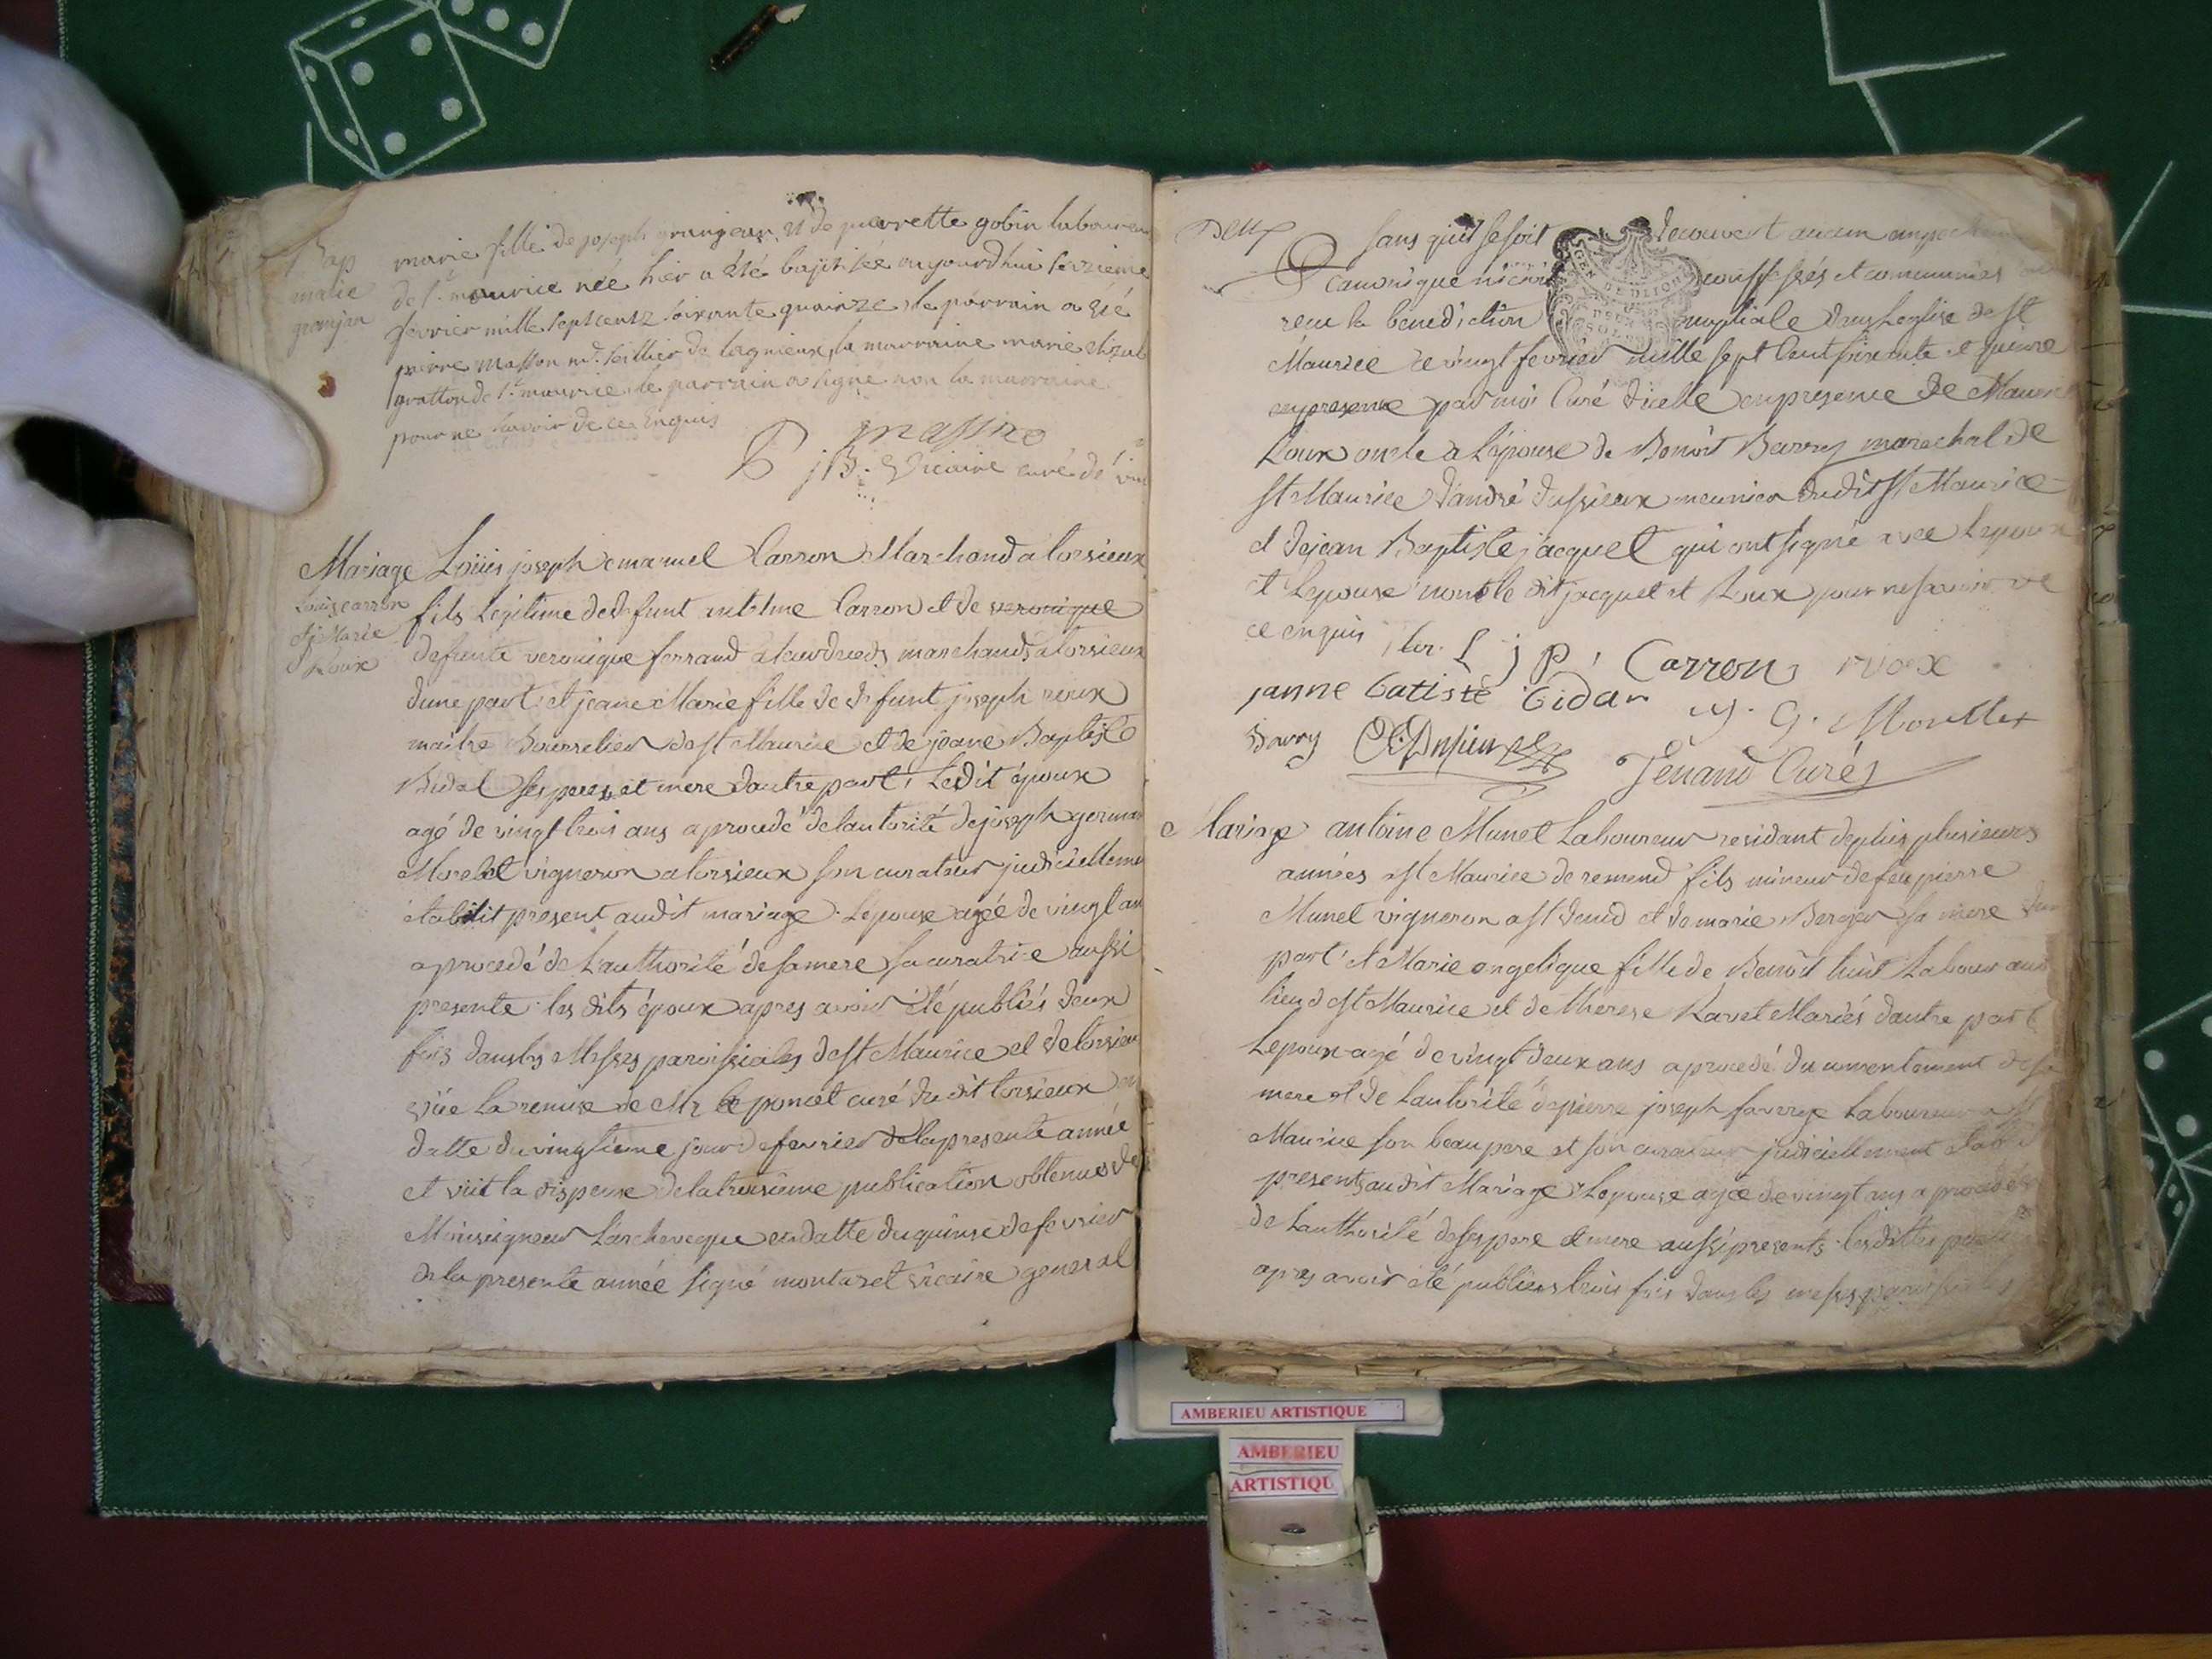 Bap
marie
granjan
marie fille de joseph granjean et de pierrette gobin laboureur
de st maurice née hier a été baptisée aujourdhui seizieme
fevrier mille septcentz soixante quinze, le parrain a été
pierre masson md. sellier de lagnieux, la marraine marie elizab
gratton de st maurice, le parrain a signé non la marraine
pour ne savoir de ce enquis
P masson
jB. vicaire curé de
Mariage
Louis carron
et j Marie
Rioux
Loüis joseph emanuel Carron Marchand a loisieux
fils legitime de defunt antelme Carron et de veronique
defunte veronique ferrand marchands a loisieux
dune part et jeane Marie fille de defunt joseph rioux
maitre Bourrelier de st Maurice et de jeane Baptiste
Bidal ses peres et mere dautre part, Ledit époux
agé de vingt trois ans a procedé de lautorité de joseph germain
Morellet vigneron a loisieux son curateur judiciellement
établit present audit mariage. Lépouse agée de vingt an
a procedé de L'authorité de sa mere sa curatrice aussi
presente. les dits époux apres avoir été publiés deux
fois dans les Messes paroissiales de st Maurice et de loisieu
vüe la remise de Mr le poncet curé du dit loisieux en
datte du vingtieme jour de fevrier de la presente année
et viit la dispense de la troisieme publication obtenue de
Monseigneur L'archeveque en datte du quinse de fevrier
de la presente année signé montaret vicaire general
Deux
sans qu'il se soit decouvert aucun
canonique ni civil confessés et communiés
reçu la benediction nuptiale dans Leglise de st
Maurice ce vingt fevrier mille sept Cent soixante et quinse
en presence par moi Curé dicelle en presence de Maurice
Roux oncle a L'épouse de Benoit Bavoy marechal de
st Maurice d'andré dussieux meunier dudit st Maurice
et de jean Baptiste jacquet qui ont signé avec Lepoux
et Lepouse non le dit jacquet et Roux pour ne savoir de
ce enquis
L j P, Carron, rioux
janne batiste bidan
j. G. Morellet
Bavoy
Dussieux
Tenand Curé
GEN DE LION
DEUX SOLS
Mariage antoine Munet Laboureur residant depuis plusieurs
années a st Maurice de remend fils mineur de feu pierre
Munet vigneron a st denis et de marie Berger sa mere dun
part et Marie angelique fille de Benoit huit Labour audit
lieu de st Maurice et de therese Ravet Mariés dautre part
Lepoux agé de vingt deux ans a procedé du consentement de sa
mere et de lautorité de pierre joseph faverge Laboureur a st
Maurice son beau pere et son curateur judiciellement etabli
present audit Mariage. Lepouse agée de vingt ans a procedé
de L'authorité de ses pere et mere aussi presents. les dits
apres avoir été publiers trois fois dans les messes paroissiales
AMBERIEU ARTISTIQUE
AMBERIEU
ARTISTIQU